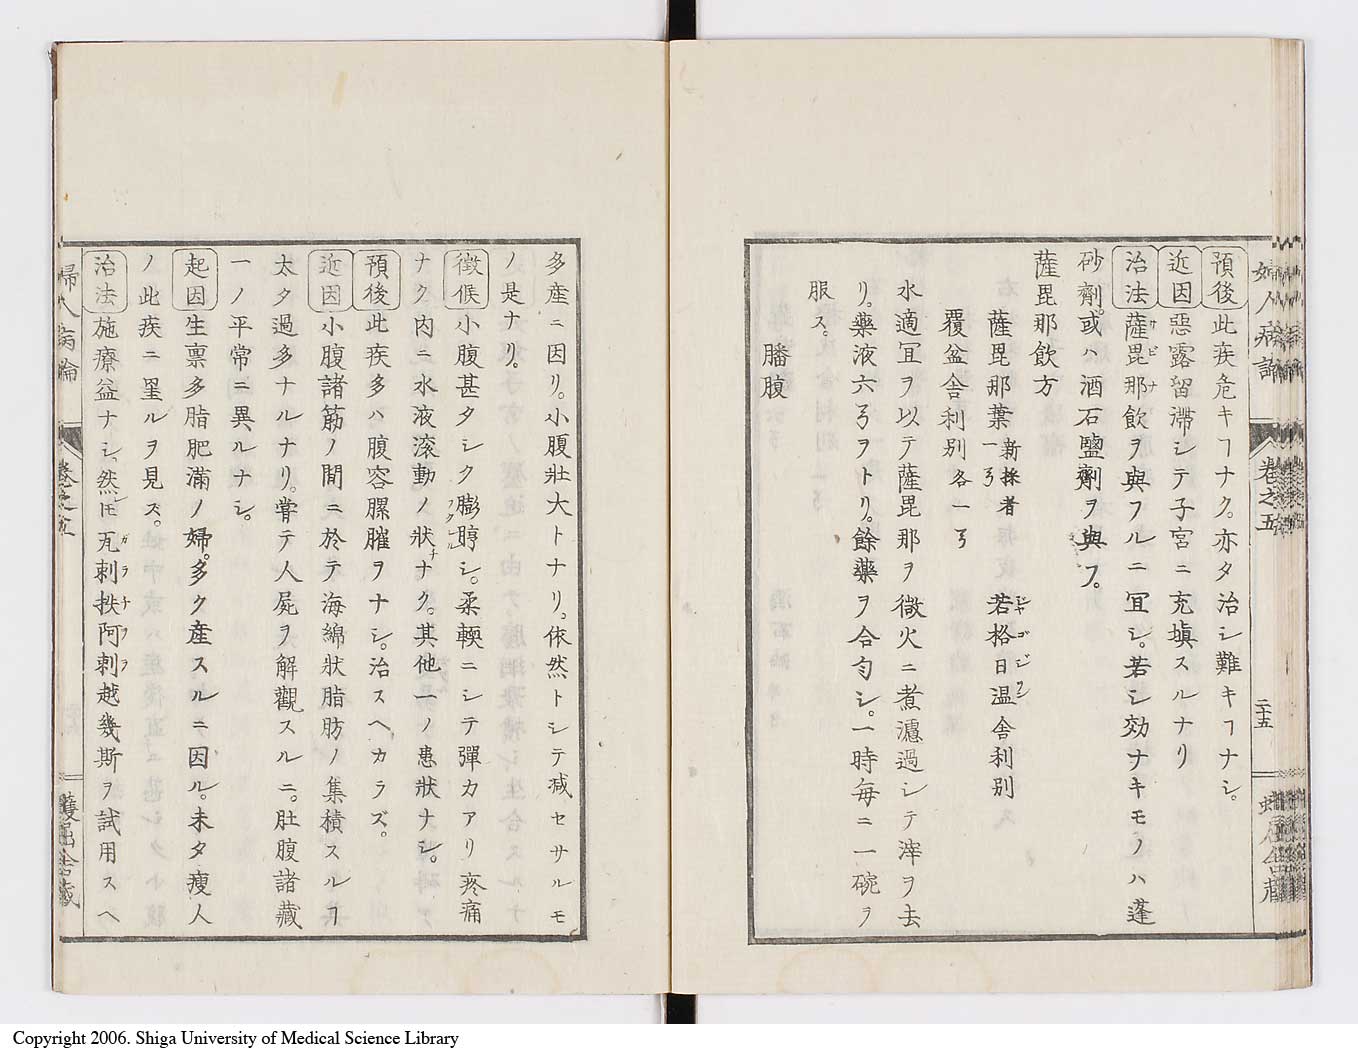 婦人病論
卷之五
二十五
蠖屈舍藏
預後此疾危キヿナク。亦タ治シ難キヿナシ。
近因惡露留滯シテ子宮ニ充塡スルナリ
治法薩毘那飲ヲ與フルニ冝シ。若シ効ナキモノハ蓬
サビナ
砂劑。或ハ酒石鹽劑ヲ與フ。
薩毘那飲方
薩毘那葉新採者一弓 若格日温舎利別
覆盆舎利別各一弓
水適冝ヲ以テ薩毘那ヲ微火ニ煮濾過シテ滓ヲ去
リ。藥液六弓ヲトリ。餘藥ヲ合匀シ。一時毎ニ一碗ヲ
服ス。
膰腹
多産ニ因リ。小腹壯大トナリ。依然トシテ減セサルモ
ノ是ナリ。
徴候小腹甚タシク膨脝シ。柔軟ニシテ彈力アリ疼痛
フクレル
ナク内ニ水液滚動ノ狀ナク。其他一ノ患狀ナシ。
預後此疾多ハ腹容臞脽ヲナシ。治スヘカラズ。
近因小腹諸筋ノ間ニ於テ海綿狀脂肪ノ集積スルヿ
太タ過多ナルナリ。甞テ人屍ヲ解觀スルニ。肚腹諸藏
一ノ平常ニ異ルナシ。
起因生禀多脂肥滿ノ婦。多ク産スルニ因ル。未タ瘦人
ノ此疾ニ罣ルヲ見ス。
治法施療益ナシ、然レ𪜈瓦剌抶阿剌越幾斯ヲ試用スヘ
ガラナフラ
婦人病論
卷之五
蠖屈舍藏
Copyright 2006. Shiga University of Medical Science Library